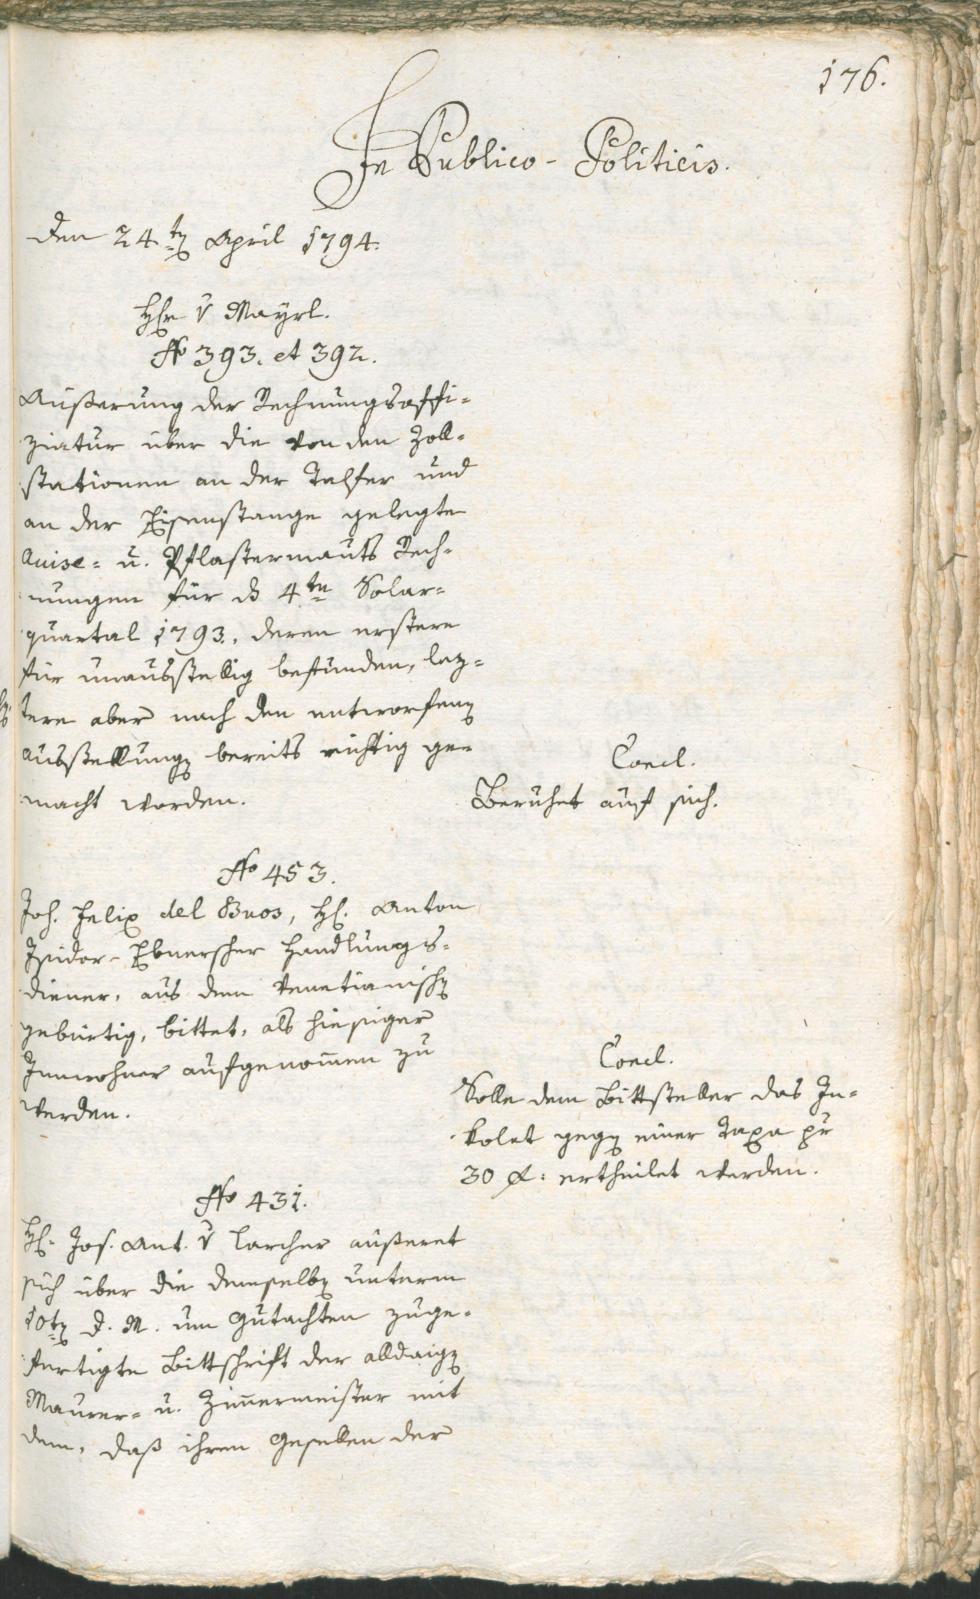 176.
In Publico-Politicis.
den 24.ten April 1794.
Hhr v Mayrl.
No 393. et 392.
Äußerung der Rechnungsoffi-
ziatur über die von den Zoll-
stationen an der Talfer und
an der Eisenstange gelegte
Accise- u. Pflastermauts Rech-
nungen für d 4te Solar-
quartal 1793., deren erstere
für unausstellig befunden, lez-
tere aber nach den entworfenen
Ausstellungen bereits richtig ge-
macht worden.
Concl.
Beruhet auf sich.
No 453.
Joh. Felix del Buos, H. Anton
Isidor-Ebnerscher Handlungs-
diener, aus dem Venetianischen
gebürtig, bittet, als hiesiger
Innwohner aufgenommen zu
werden.
Concl.
Solle dem Bittsteller das In-
kolat gegen einer Taxa pr
30 f: ertheilet werden.
No 431.
H. Jos. Ant. v Larcher äußeret
sich über die demselben unterm
10ten d. M. um Gutachten zuge-
fertigte Bittschrift der alldaigen
Maurer- u. Zimmermeister mit
dem, daß ihren Gesellen der